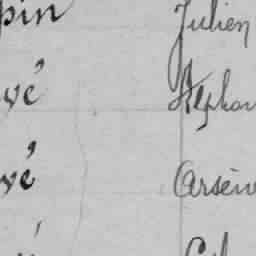 pin Julien
vé Alphon
vé Arsèn